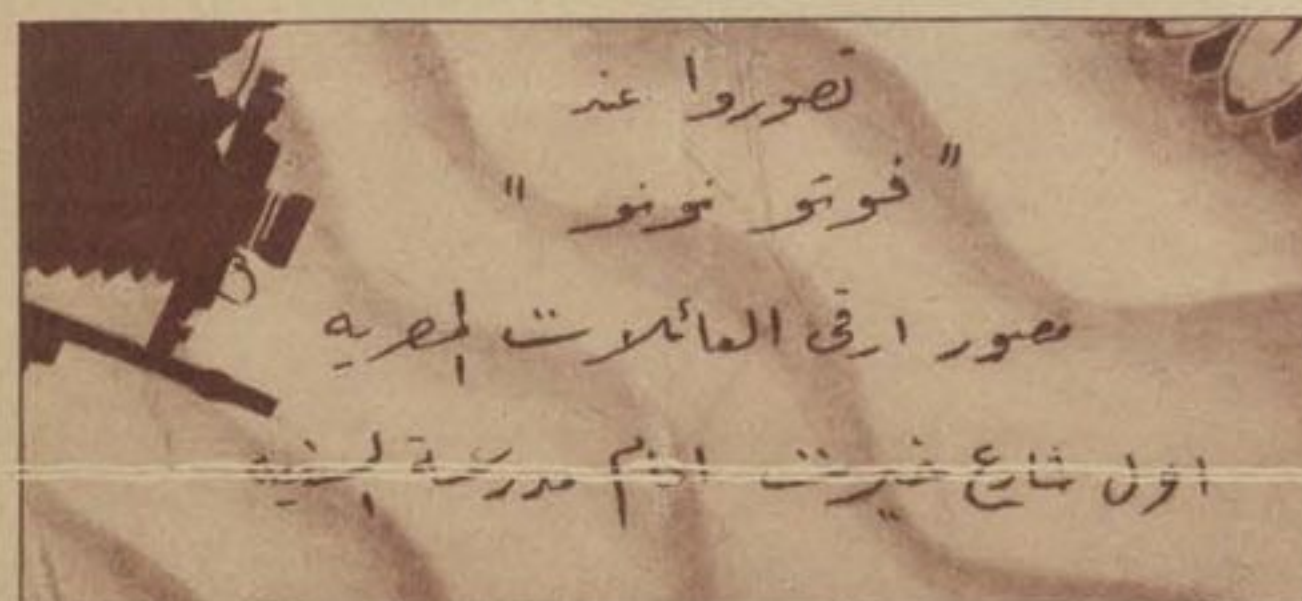 تصوروا عند
" فوتو نونو "
مصور ارقى العائلات المصريه
اول شارع خيرت امام مدرسة السنيه